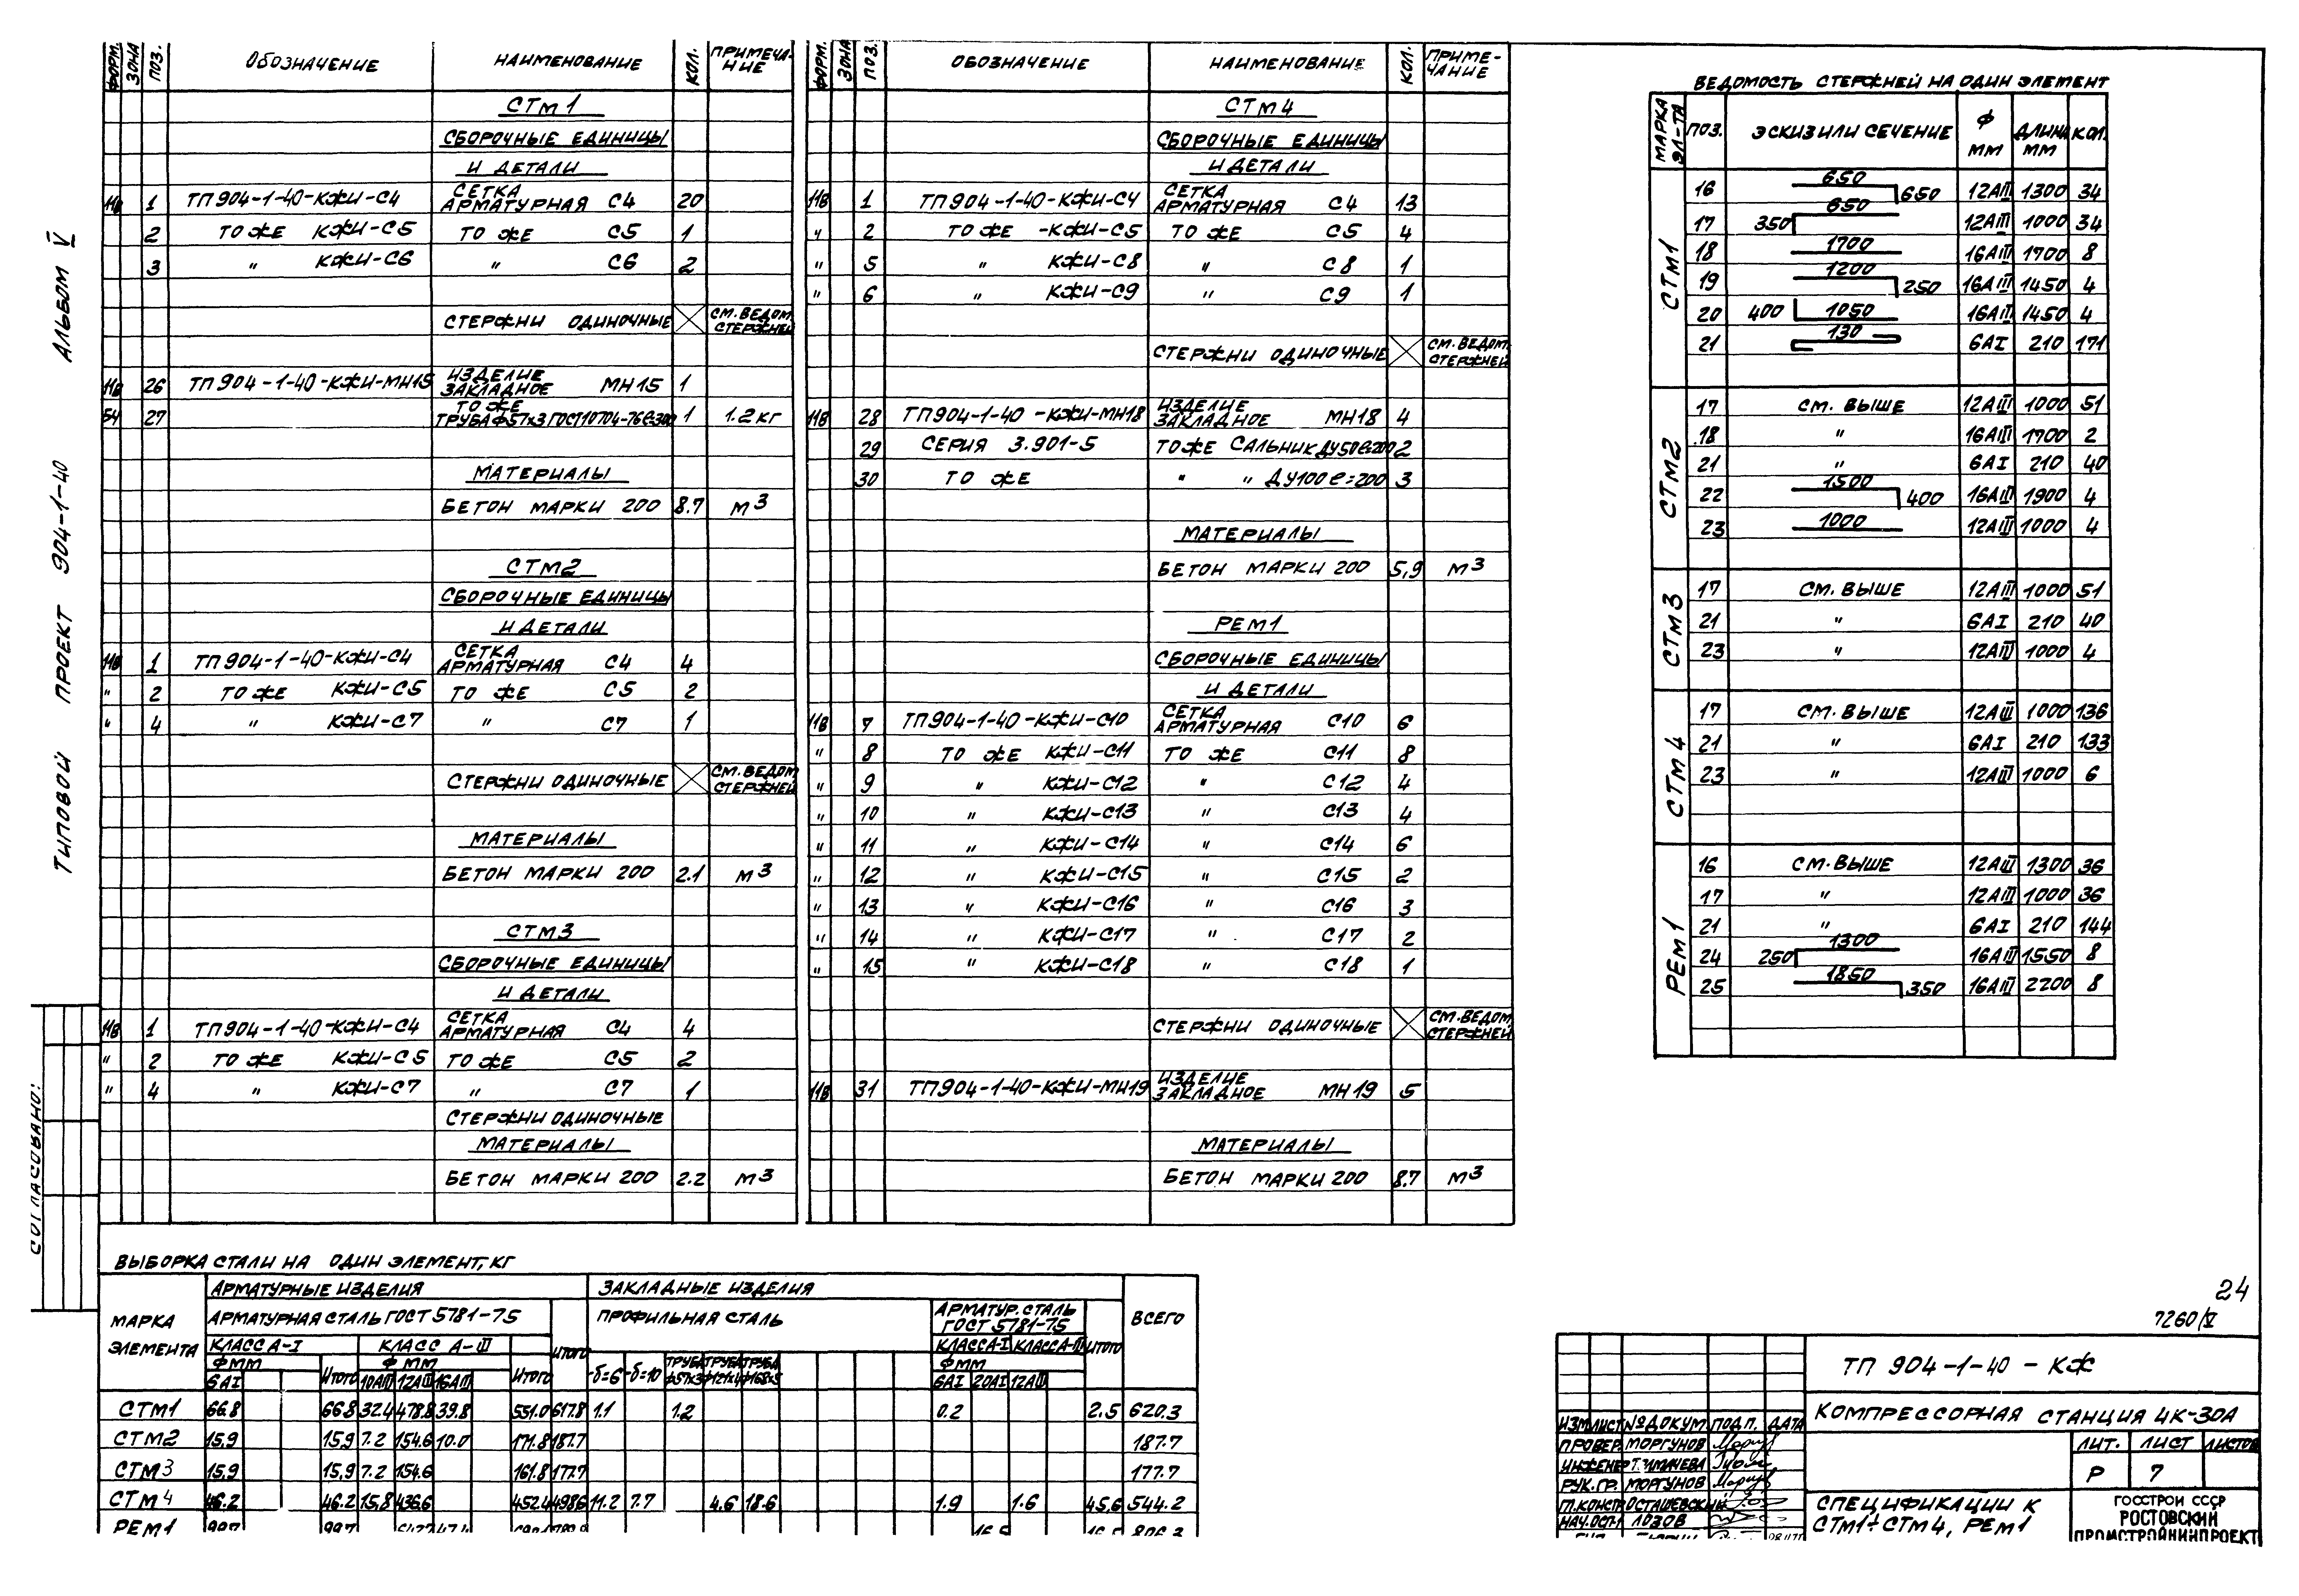 Альбом V
Типовой проект 904-1-40
Согласовано:
Форм. Зона Поз. Обозначение Наименование Кол. Примечание
СТм1
Сборочные единицы
и детали
11в 1 ТП 904-1-40-КЖИ-С4 Сетка арматурная С4 20
2 То же КЖИ-С5 То же С5 1
3 " КЖИ-С6 " С6 2
Стержни одиночные См. ведом. стержней
11в 26 ТП 904-1-40-КЖИ-МН15 Изделие закладное МН15 1
Б4 27 То же Труба ф57х3 ГОСТ 10704-76 ℓ=300 1 1.2 кг
Материалы
Бетон марки 200 8.7 м3
СТм2
Сборочные единицы
и детали
11в 1 ТП 904-1-40-КЖИ-С4 Сетка арматурная С4 4
" 2 То же КЖИ-С5 То же С5 2
" 4 " КЖИ-С7 " С7 1
Стержни одиночные См. ведом. стержней
Материалы
Бетон марки 200 2.1 м3
СТм3
Сборочные единицы
и детали
11в 1 ТП 904-1-40-КЖИ-С4 Сетка арматурная С4 4
" 2 То же КЖИ-С5 То же С5 2
" 4 " КЖИ-С7 " С7 1
Стержни одиночные
Материалы
Бетон марки 200 2.2 м3
Форм. Зона Поз. Обозначение Наименование Кол. Примечание
СТм4
Сборочные единицы
и детали
11в 1 ТП 904-1-40-КЖИ-С4 Сетка арматурная С4 13
" 2 То же -КЖИ-С5 То же С5 4
" 5 " КЖИ-С8 " С8 1
" 6 " КЖИ-С9 " С9 1
Стержни одиночные См. ведом. стержней
11в 28 ТП 904-1-40-КЖИ-МН18 Изделие закладное МН18 4
29 Серия 3.901-5 То же Сальник Ду50 ℓ=200 2
30 То же " " Ду100 ℓ=200 3
Материалы
Бетон марки 200 5,9 м3
РЕм1
Сборочные единицы
и детали
11в 7 ТП 904-1-40-КЖИ-С10 Сетка арматурная С10 6
" 8 То же КЖИ-С11 То же С11 8
" 9 " КЖИ-С12 " С12 4
" 10 " КЖИ-С13 " С13 4
" 11 " КЖИ-С14 " С14 6
" 12 " КЖИ-С15 " С15 2
" 13 " КЖИ-С16 " С16 3
" 14 " КЖИ-С17 " С17 2
" 15 " КЖИ-С18 " С18 1
Стержни одиночные См. ведом. стержней
11в 31 ТП 904-1-40-КЖИ-МН19 Изделие закладное МН19 5
Материалы
Бетон марки 200 8.7 м3
Ведомость стержней на один элемент
Марка эл-та Поз. Эскиз или сечение Ф мм Длина мм Кол.
СТм1
16 650 650 12АIII 1300 34
17 350 650 12АIII 1000 34
18 1700 16АIII 1700 8
19 1200 250 16АIII 1450 4
20 400 1050 16АIII 1450 4
21 130 6АI 210 171
СТм2
17 См. выше 12АIII 1000 51
18 " 16АIII 1700 2
21 " 6АI 210 40
22 1500 400 16АIII 1900 4
23 1000 12АIII 1000 4
СТм3
17 См. выше 12АIII 1000 51
21 " 6АI 210 40
23 " 12АIII 1000 4
СТм4
17 См. выше 12АIII 1000 136
21 " 6АI 210 133
23 " 12АIII 1000 6
РЕм1
16 См. выше 12АIII 1300 36
17 " 12АIII 1000 36
21 " 6АI 210 144
24 250 1300 16АIII 1550 8
25 1850 350 16АIII 2200 8
Выборка стали на один элемент, кг
Марка элемента Арматурные изделия Закладные изделия Всего
Арматурная сталь ГОСТ 5781-75 Итого Профильная сталь Арматур. сталь ГОСТ 5781-75 Итого
Класс А-I Класс А-III Класс А-I Класс А-III
Ф мм Итого Ф мм Итого -δ=6 -δ=10 Труба ф57х3 Труба ф121х4 Труба ф168х5 Ф мм
6АI 10АIII 12АIII 16АIII 6АI 20АI 12АIII
СТм1 66.8 66.8 32.4 478.8 39.8 551.0 617.8 1.1 1.2 0.2 2.5 620.3
СТм2 15.9 15.9 7.2 154.6 10.0 171.8 187.7 187.7
СТм3 15.9 15.9 7.2 154.6 161.8 177.7 177.7
СТм4 46.2 46.2 15.8 436.6 452.4 498.6 11.2 7.7 4.6 18.6 1.9 1.6 45.6 544.2
РЕм1
24
7260/V
ТП 904-1-40-КЖ
Компрессорная станция 4К-30А
Изм. Лист № докум. Подп. Дата
Провер. Моргунов
Инженер Тумачева
Рук. гр. Моргунов
Гл. констр. Осташевский
Нач. отд. Лозов
Лит. Лист Листов
Р 7
Спецификации к
СТм1÷СТм4, РЕм1
Госстрой СССР
Ростовский
Промстройниипроект